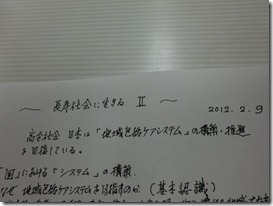 ～ 長寿社会に生きる Ⅱ ～ 2012.2.9
高令社会 日本は「地域包括ケアシステム」の構築・推進
を目指している。
「国」における「システム」の構築
なぜ 地域包括ケアシステムを目指すのか (基本認識)